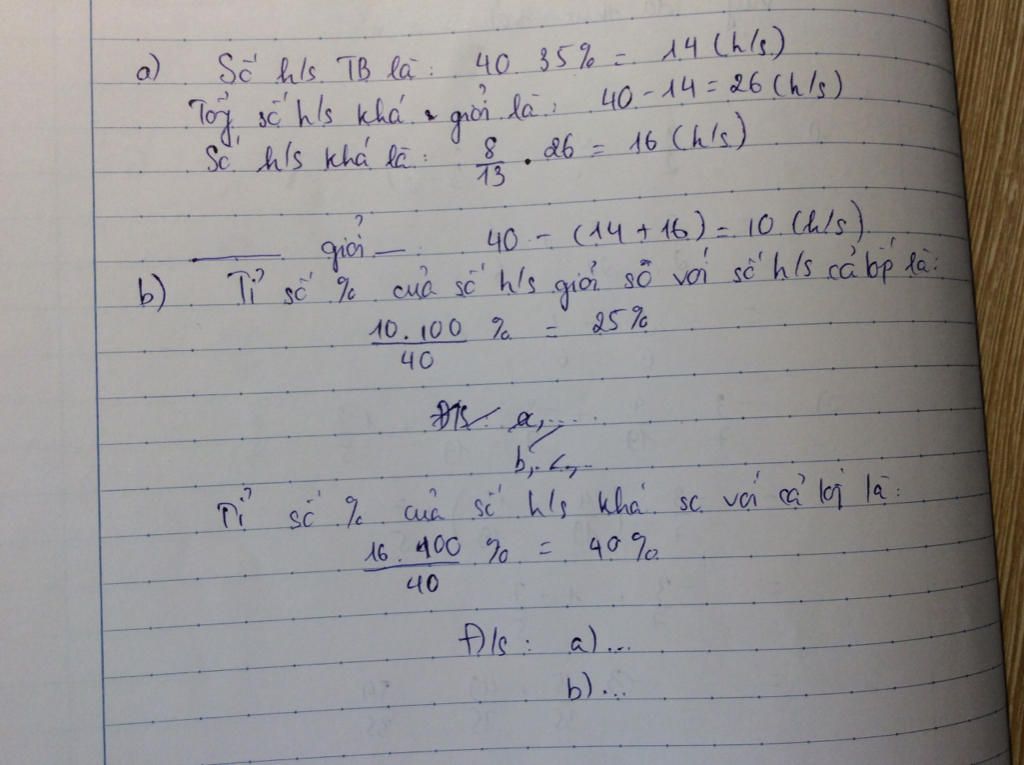 a) Số h/s TB là: 40 35% = 14 (h/s)
Tổg số h/s khá giỏi là: 40 - 14 = 26 (h/s)
Số h/s khá là: 8/13 . 26 = 16 (h/s)
—— giỏi —: 40 - (14 + 16) = 10 (h/s)
b) Tỉ số % của số h/s giỏi số với số h/s cả lớp là:
10.100/40 % = 25%
Đ/S a,...
b,...
Tỉ số % của số h/s khá so với cả lớp là:
16.100/40 % = 40%
Đ/s: a)...
b)...